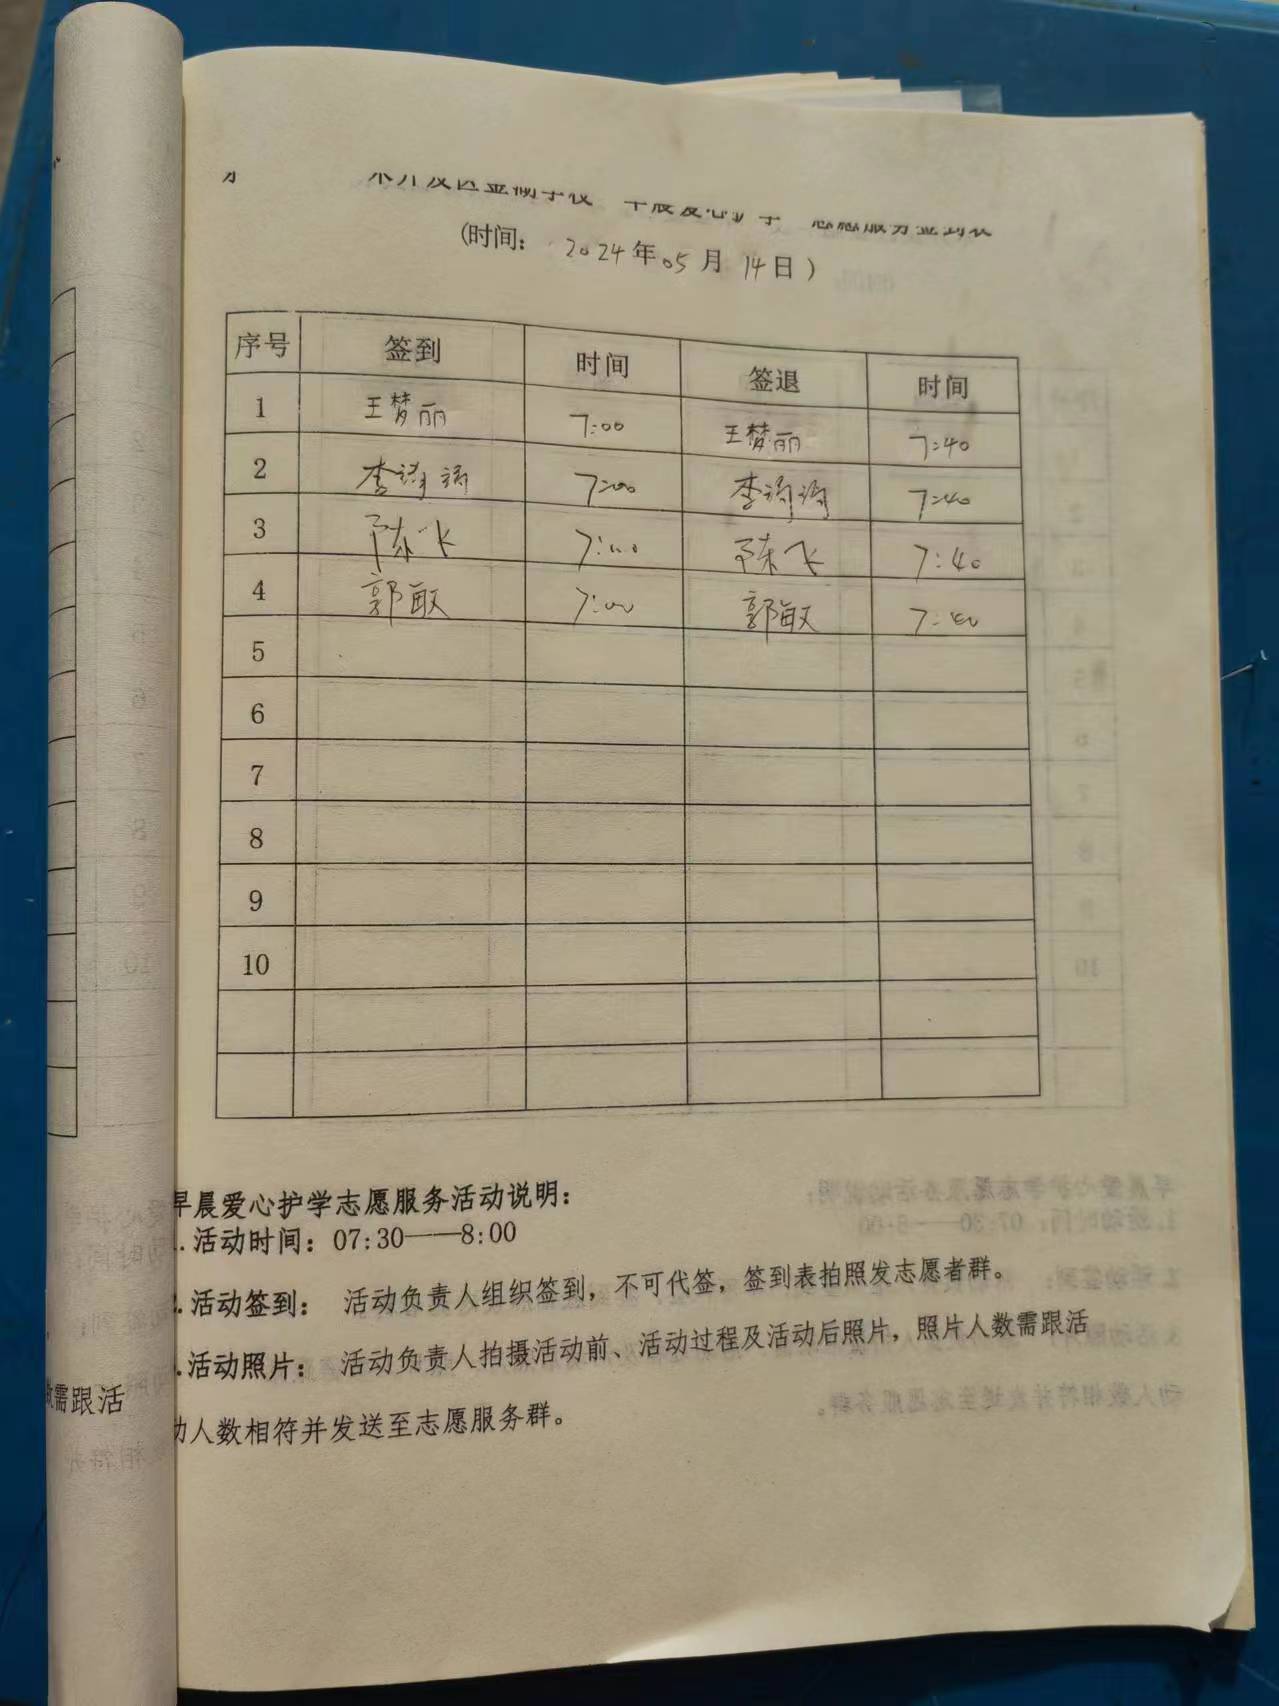 (时间: 2024年05月14日)
序号 签到 时间 签退 时间
1 王梦丽 7:00 王梦丽 7:40
2 李 7:00 李 7:40
3 陈飞 7:00 陈飞 7:40
4 郭敏 7:00 郭敏 7:40
5
6
7
8
9
10
早晨爱心护学志愿服务活动说明:
.活动时间: 07:30——8:00
.活动签到: 活动负责人组织签到, 不可代签, 签到表拍照发志愿者群。
.活动照片: 活动负责人拍摄活动前、活动过程及活动后照片, 照片人数需跟活
动人数相符并发送至志愿服务群。
需跟活